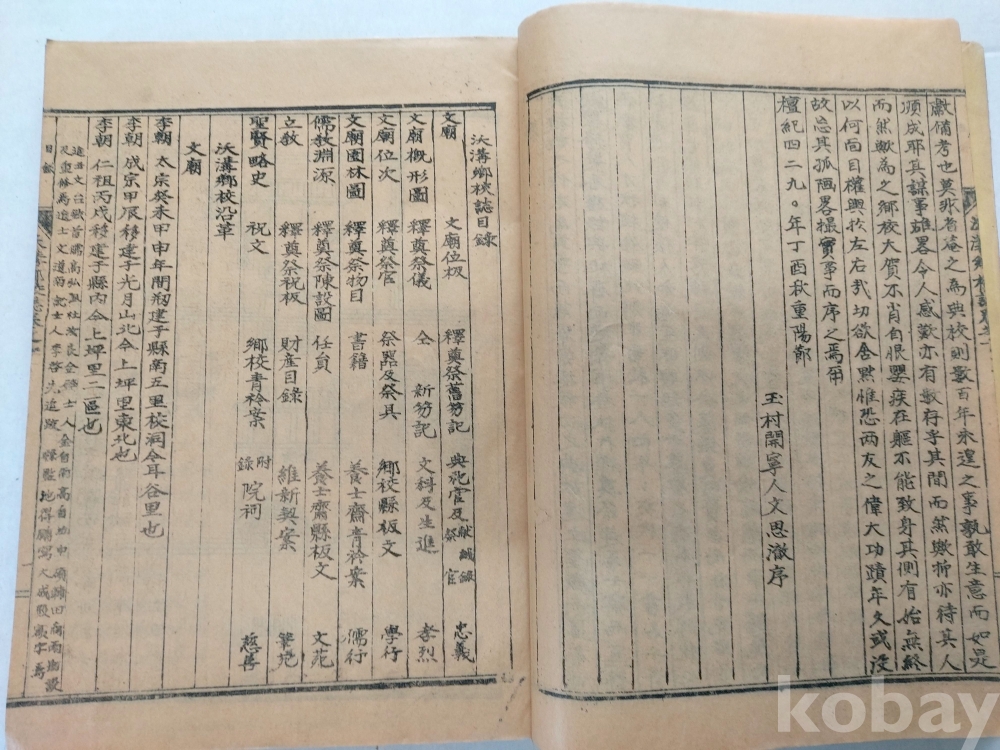 獻備考也莫非省菴之為典校則數百年未遑之事孰敢生意而如是
順成耶其謀事雄畧令人感歎亦有數存乎其間而然歟抑亦待其人
而然歟為之鄉校大賀不肖自恨嬰疾在軀不能致身其側有始無終
以何面目權輿於左右哉切欲舍默惟恐兩友之偉大功蹟年久或沒
故忘其孤陋畧撮實事而序之焉爾
檀紀四二九〇年丁酉秋重陽節
玉村開寧人文思澈序
沃溝鄉校誌目錄
文廟 文廟位板 釋奠祭舊笏記 典祀官及獻官祭官 忠義
文廟概形圖 釋奠祭儀 仝 新笏記 文科及生進 孝烈
文廟位次 釋奠祭官 祭器及祭具 鄉校縣板文 學行
文廟園林圖 釋奠祭物目 書籍 養士齋青衿案 儒行
儒教淵源 釋奠祭陳設圖 任員 養士齋縣板文 文苑
立教 釋奠祭祝板 財産目錄 維新契案 筆苑
聖賢略史 祝文 鄉校青衿案 附錄 院祠 慈善
沃溝鄉校沿革
文廟
李朝 太宗癸未甲申年間剏建于縣南五里校洞今耳谷里也
李朝 成宗甲辰移建于光月山北今上坪里東北也
李朝 仁祖丙戌移建于縣內今上坪里二區也
目錄
kobay